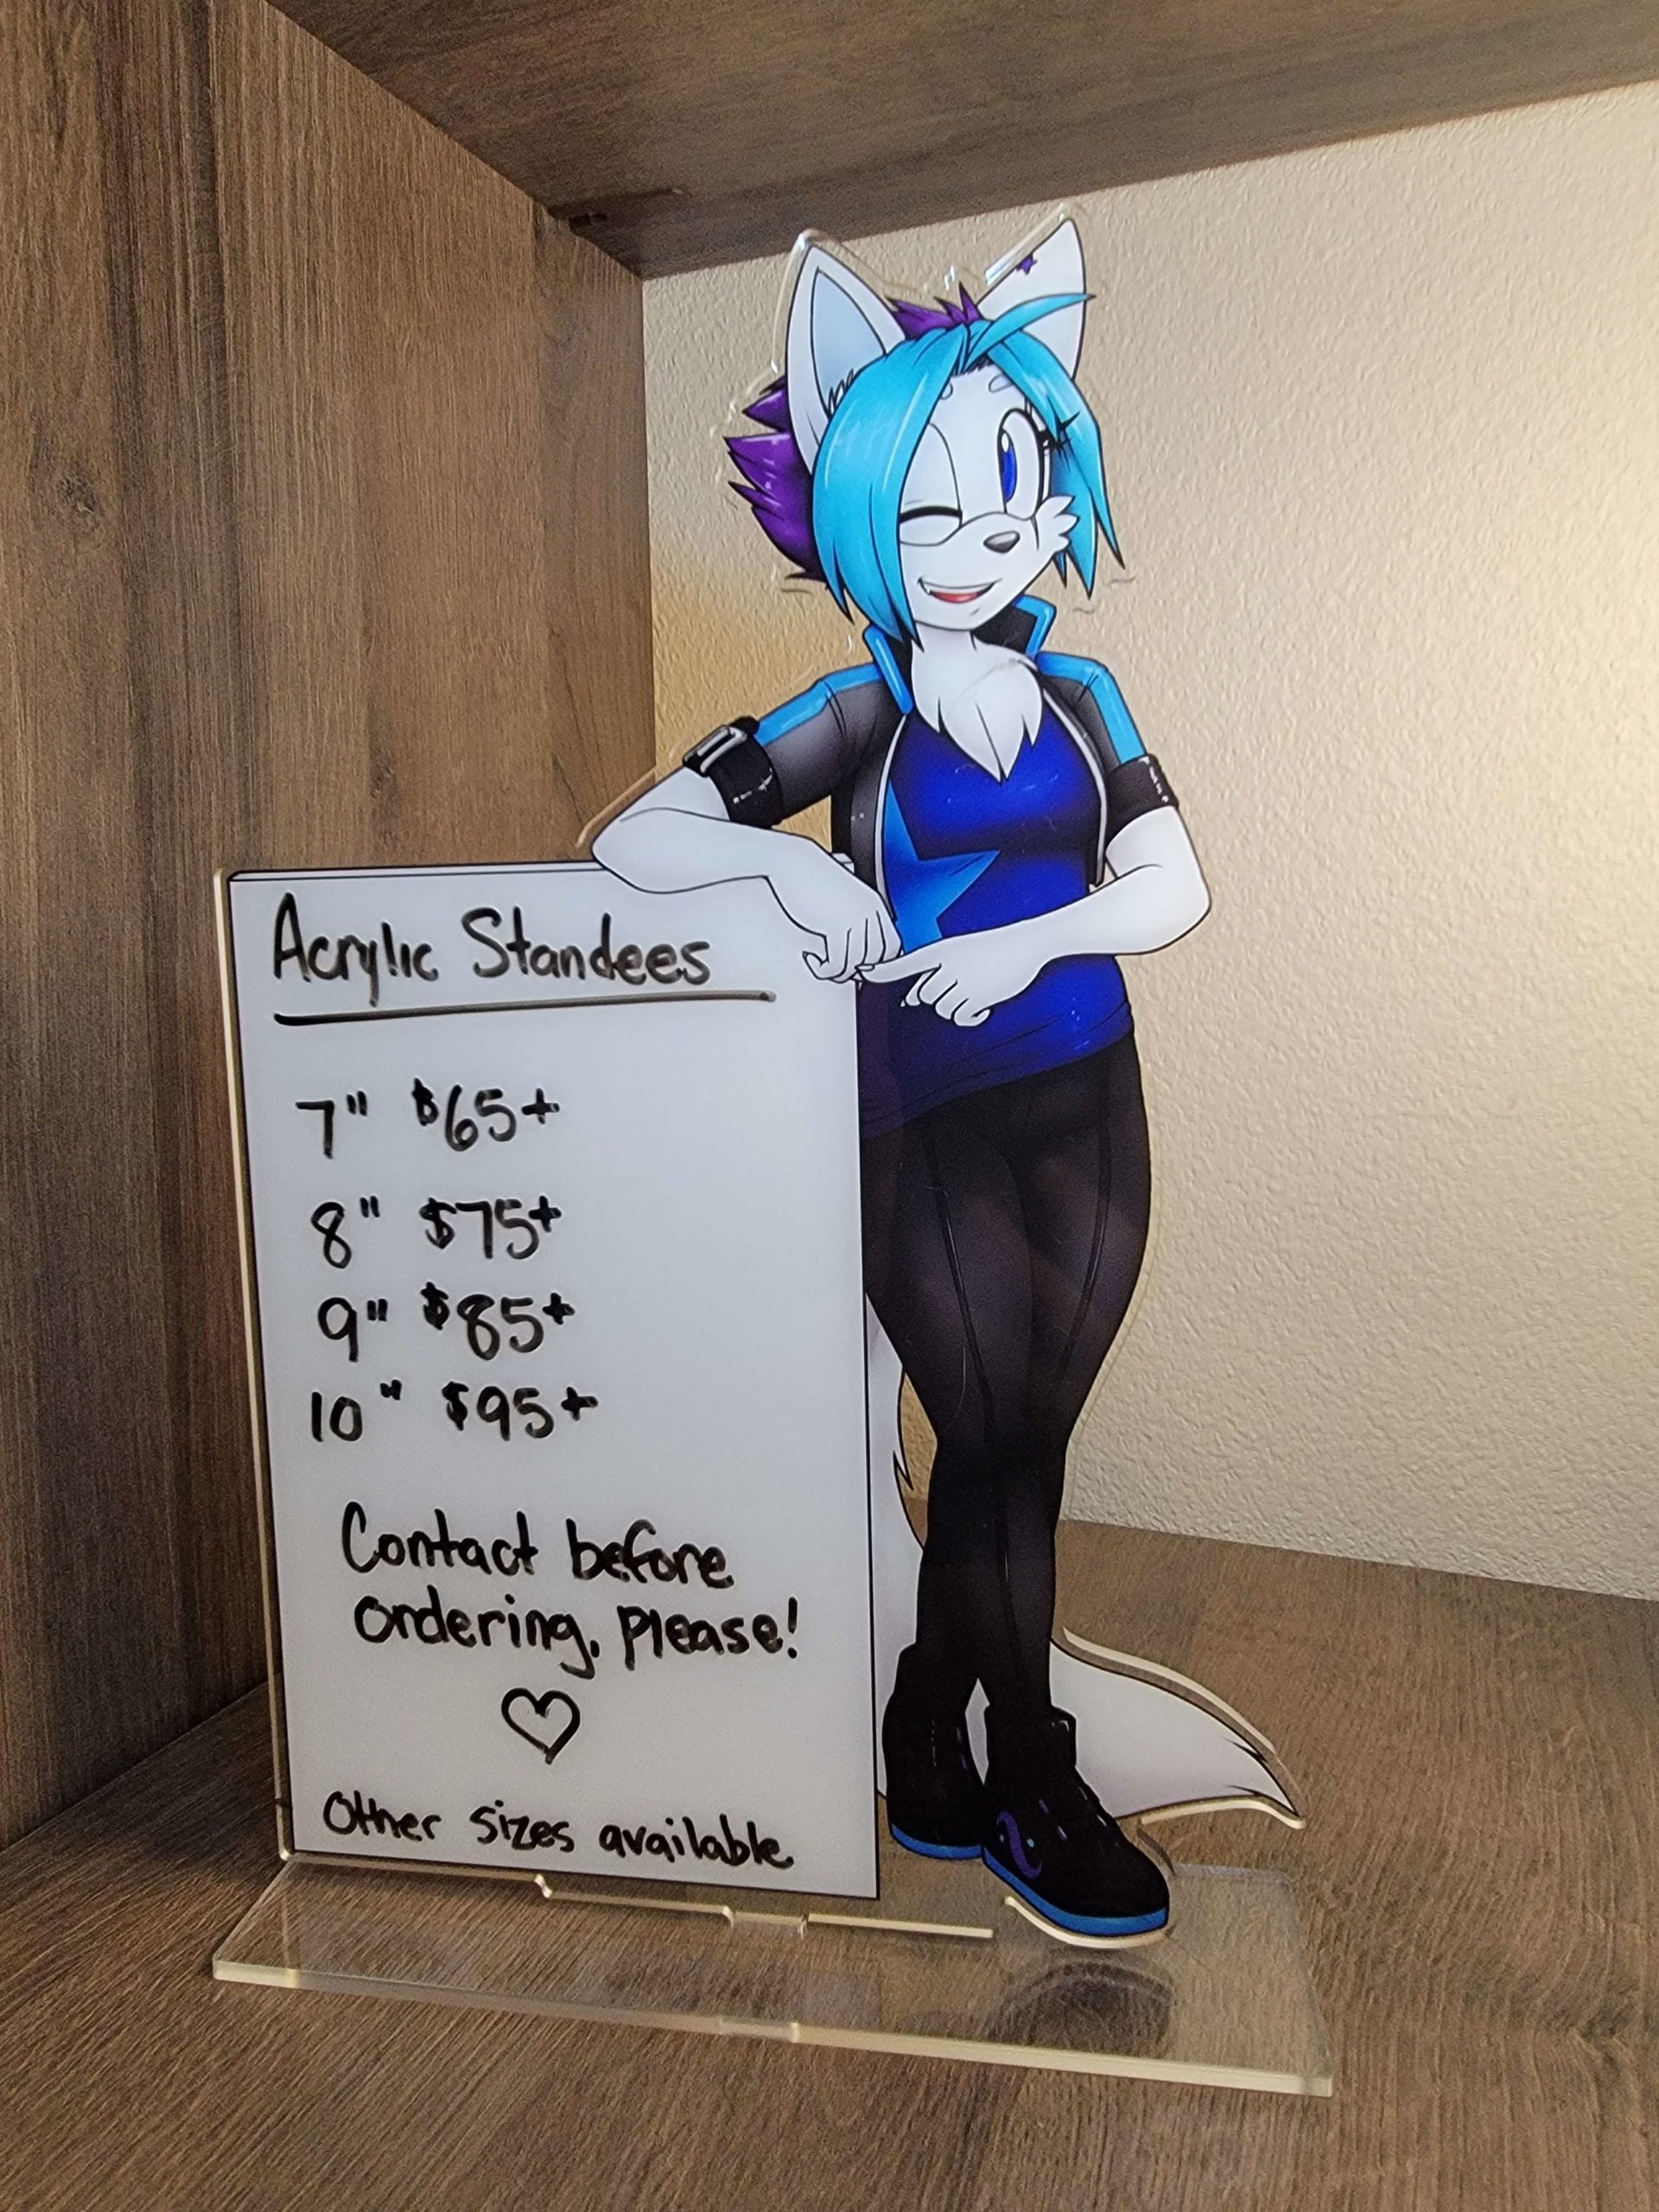 Acrylic Standees
7" $65+
8" $75+
9" $85+
10" $95+
Contact before
ordering, please!
Other sizes available